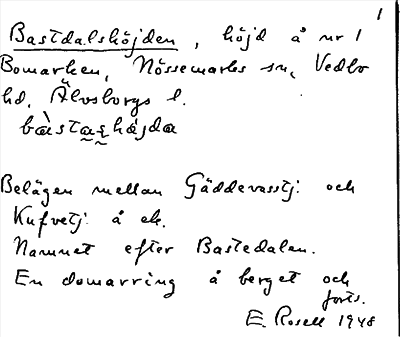 1
Bastdalshöjden, höjd å nr 1
Bomarken, Nössemarks sn, Vedbo
hd, Älvsborgs l.
Belägen mellan Gäddevasstj. och
Kufvetj. å ek.
Namnet efter Bastedalen.
En domarring å berget och
forts.
E. Rosell 1948